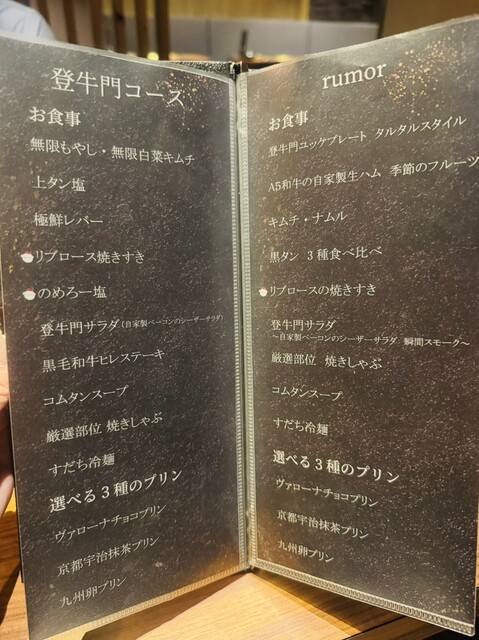 登牛門コース
お食事
無限もやし・無限白菜キムチ
上タン塩
極鮮レバー
リブロース焼きすき
のめろー塩
登牛門サラダ(自家製ベーコンのシーザーサラダ)
黒毛和牛ヒレステーキ
コムタンスープ
厳選部位 焼きしゃぶ
すだち冷麺
選べる3種のプリン
ヴァローナチョコプリン
京都宇治抹茶プリン
九州卵プリン
rumor
お食事
登牛門ユッケプレート タルタルスタイル
A5和牛の自家製生ハム 季節のフルーツ
キムチ・ナムル
黒タン 3種食べ比べ
リブロースの焼きすき
登牛門サラダ
～自家製ベーコンのシーザーサラダ 瞬間スモーク～
厳選部位 焼きしゃぶ
コムタンスープ
すだち冷麺
選べる3種のプリン
ヴァローナチョコプリン
京都宇治抹茶プリン
九州卵プリン